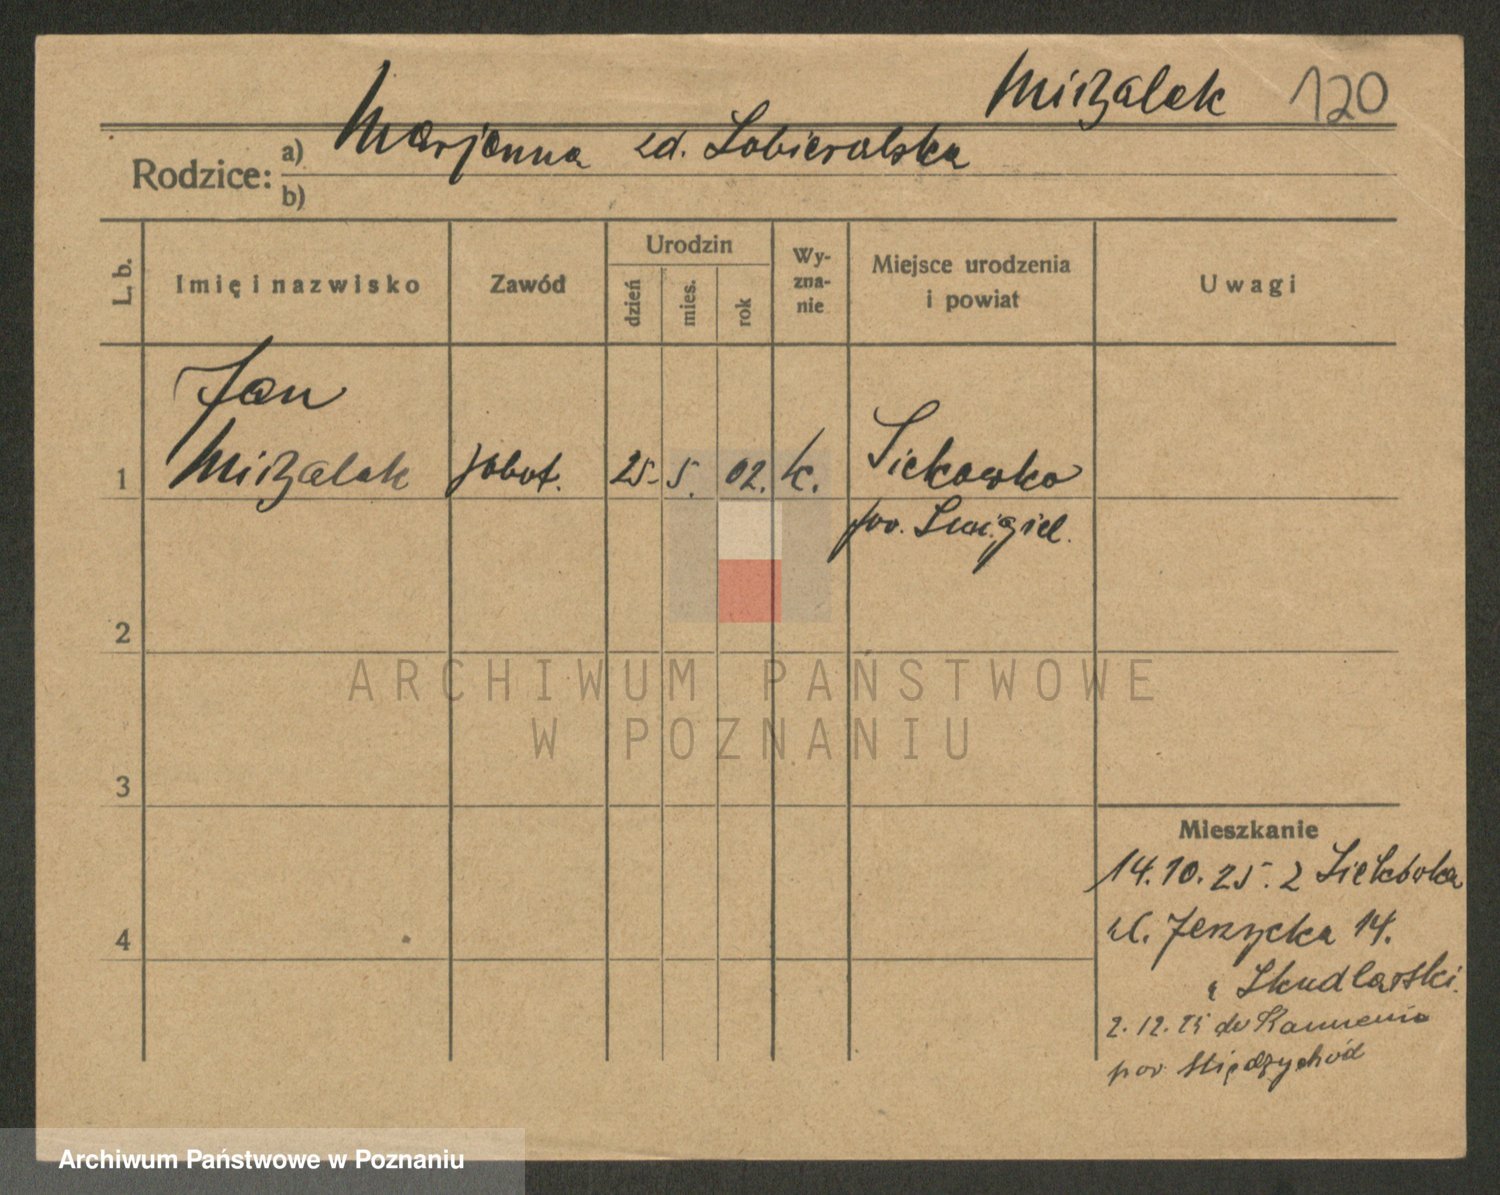 Mizalek 120
Marjanna zd. Sobieralska
Rodzice: a)
b)
L. b. Imię i nazwisko Zawód Urodzin dzień mies. rok Wy-zna-nie Miejsce urodzenia i powiat Uwagi
Jan
1 robot. 25. 5. 02. k.
pow. Śmigiel.
2
ARCHIWUM PAŃSTWOWE
W POZNANIU
3
Mieszkanie
14.10.25. z
4 ul. Jerzycka 14.
Skudlarski.
2.12.25 do
pow Międzychód
Archiwum Państwowe w Poznaniu